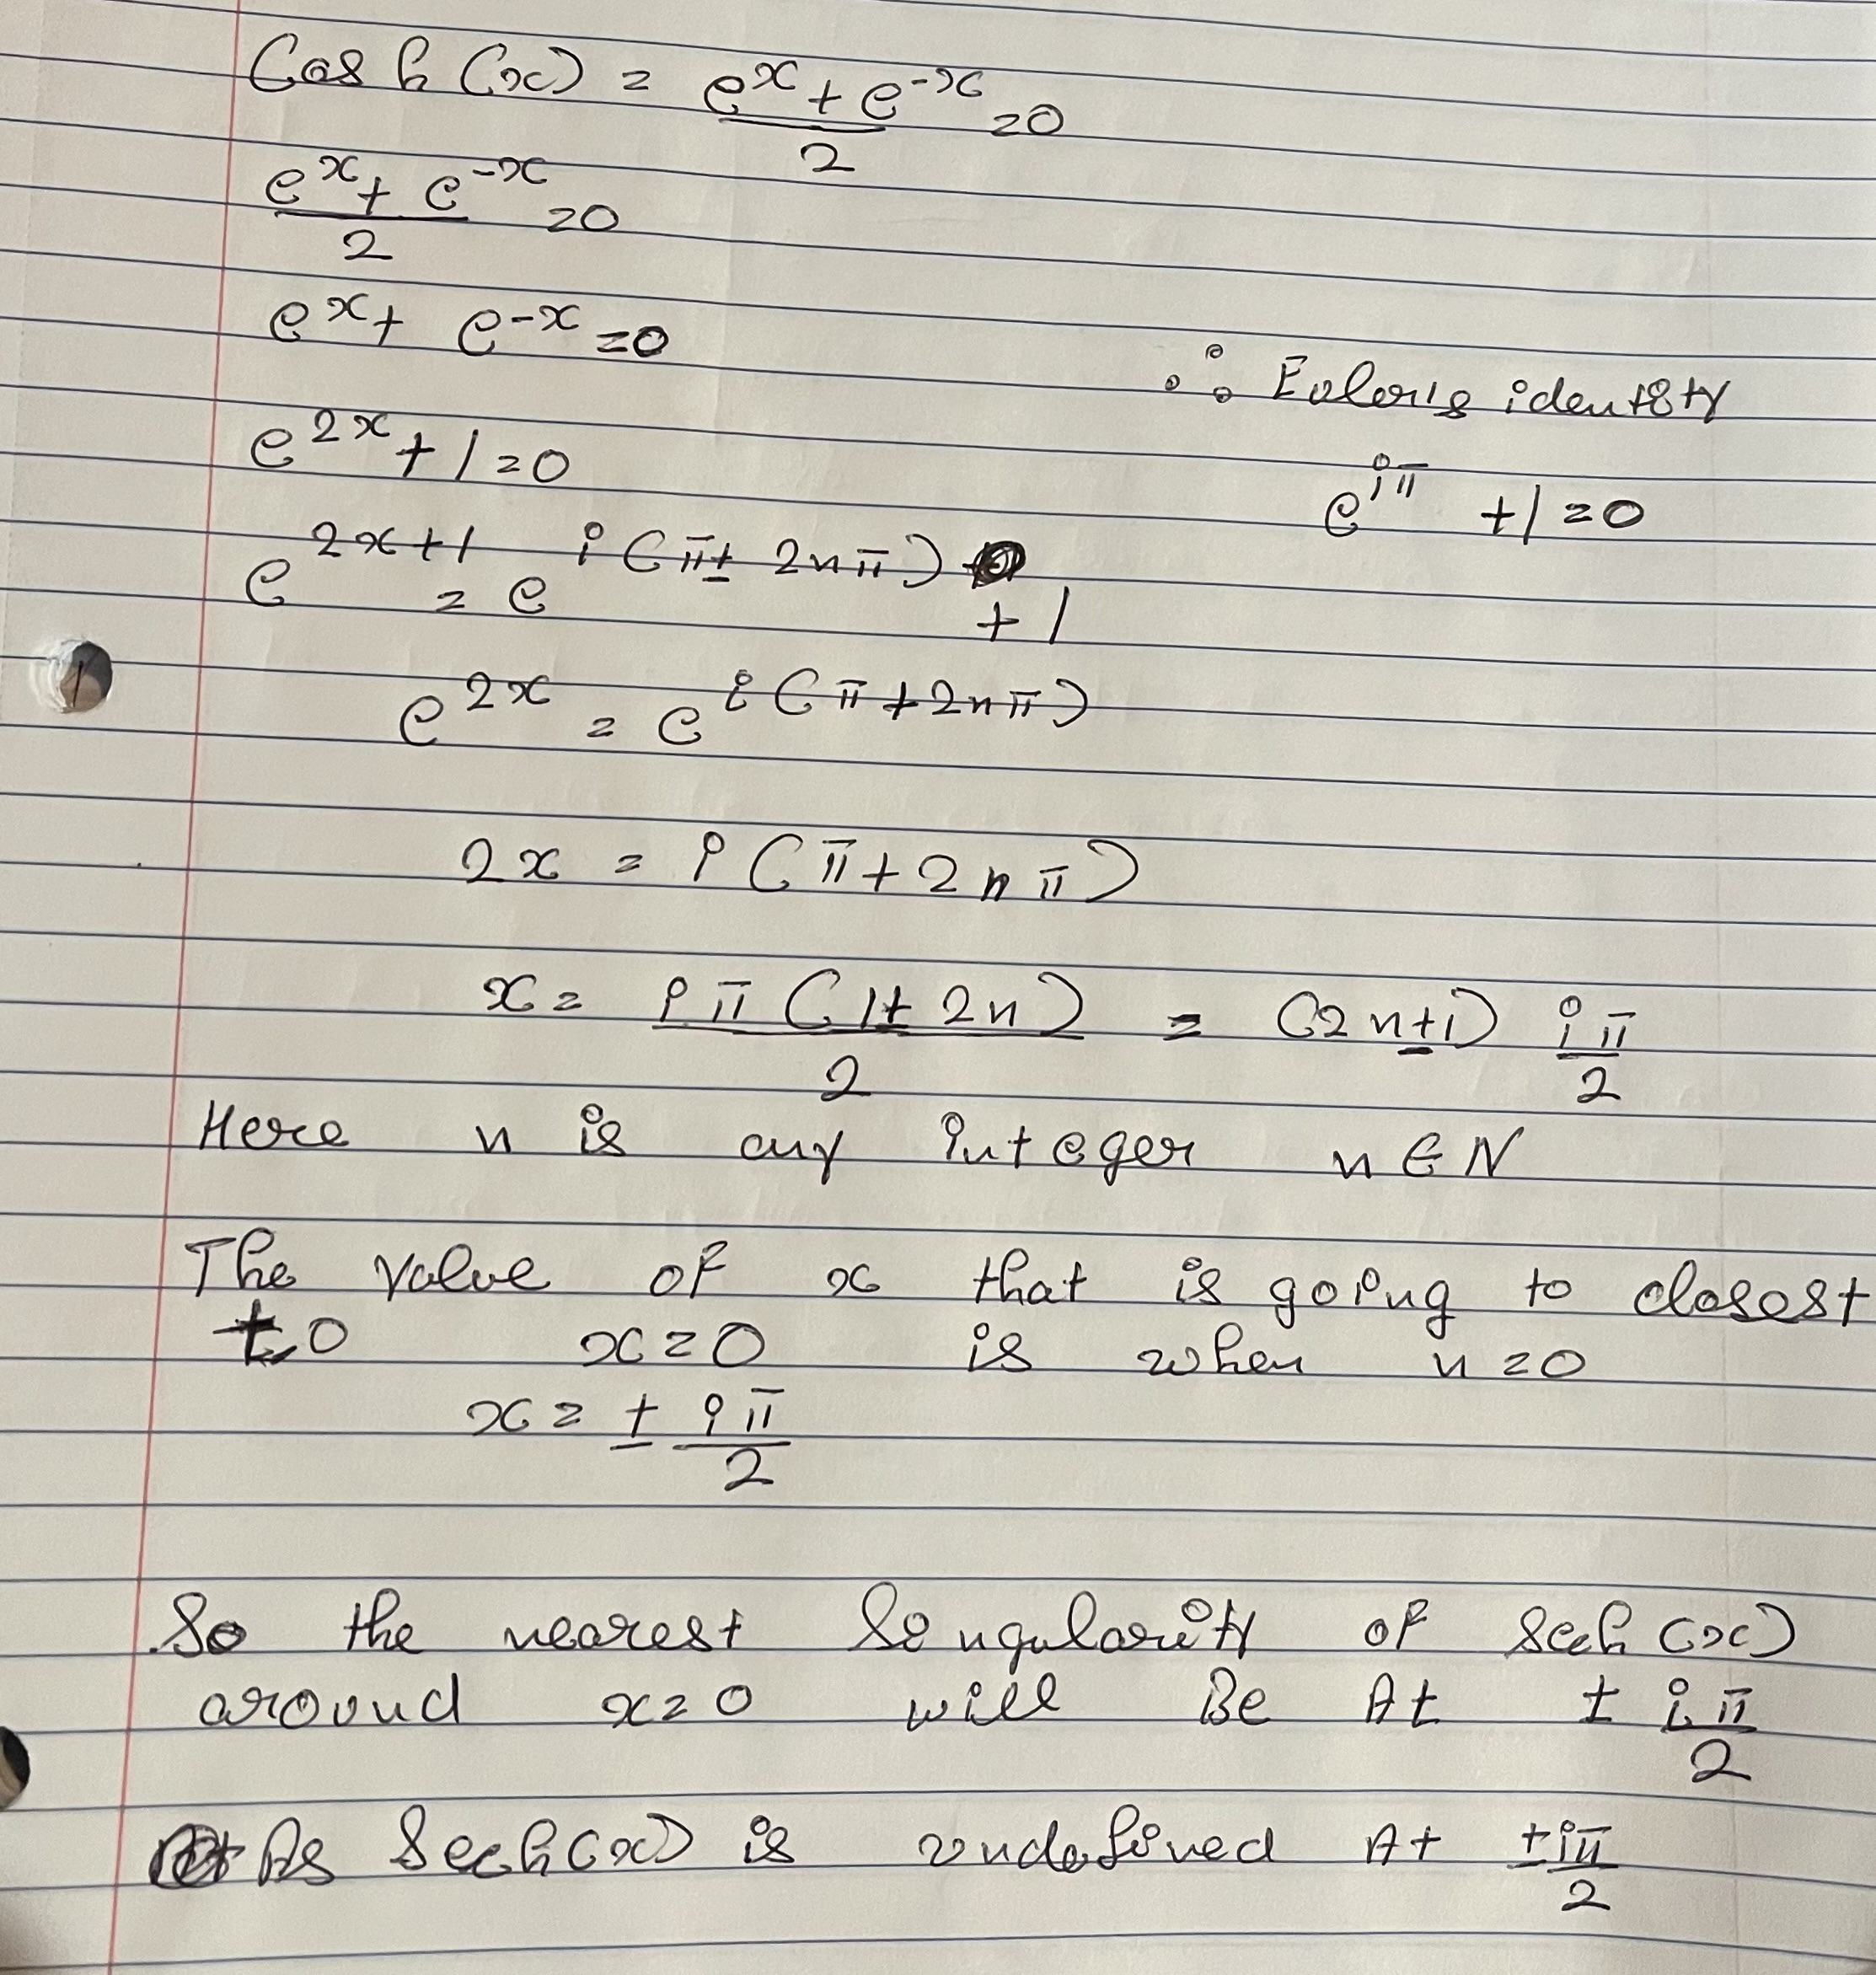 Cosh(x) = (e^x + e^-x)/2 = 0
(e^x + e^-x)/2 = 0
e^x + e^-x = 0
∴ Euler's identity
e^2x + 1 = 0
e^iπ + 1 = 0
e^2x+1 = e^i(π ± 2nπ) + 1
e^2x = e^i(π + 2nπ)
2x = i(π + 2nπ)
x = iπ(1 ± 2n)/2 = (2n ± 1) iπ/2
Here n is any integer n ∈ N
The value of x that is going to closest
to x = 0 is when n = 0
x = ± iπ/2
So the nearest Singularity of Sech(x)
around x = 0 will Be At ± iπ/2
As Sech(x) is undefined At ± iπ/2